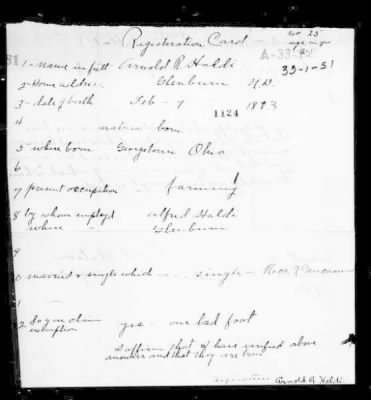 Registration Card
no 25
age in yrs
A-33-42
39-1-31
1 - name in full - Arnold R. Haldi
2 - Home address Glenburn N.D.
3 - date of birth Feb - 7 1893
1124
4 natural born
5 where born Georgetown Ohio
6
7 present occupation farming
8 by whom employd Alfred Haldi
where " Glenburn
9
0 married or single which - single - Race Caucasian
1
2 Do you claim exemption yes - one bad foot
I affirm that I have verified above
answers and that they are true
signature Arnold R. Haldi